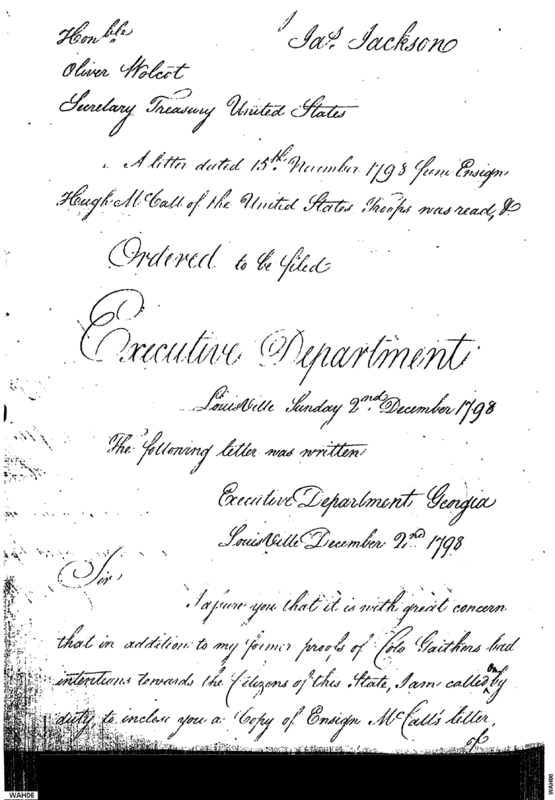 Jas. Jackson
Honble
Oliver Wolcot
Secretary Treasury United States
A letter dated 15th November 1798 from Ensign
Hugh McCall of the United States Troops was read, &
Ordered to be filed
Executive Department
Louisville Sunday 2nd December 1798
The following letter was written
Executive Department Georgia
Louisville December 2nd 1798
Sir
I assure you that it is with great concern
that in addition to my former proofs of Colo Gaithers bad
intentions towards the Citizens of this State, I am called on by
duty, to inclose you a Copy of Ensign McCall's letter,
of
WAH06
WAH06